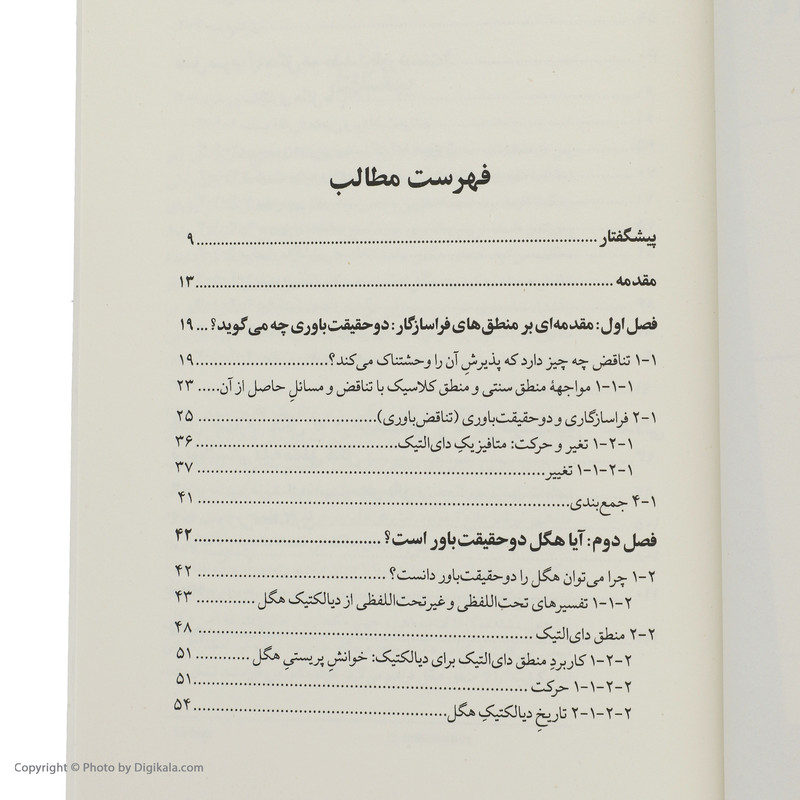 فهرست مطالب
پیشگفتار ........ ۹
مقدمه ........ ۱۳
فصل اول: مقدمه‌ای بر منطق‌های فراسازگار: دوحقیقت‌باوری چه می‌گوید؟ ... ۱۹
۱-۱ تناقض چه چیز دارد که پذیرشِ آن را وحشتناک می‌کند؟ ........ ۱۹
۱-۱-۱ مواجههٔ منطق سنتی و منطق کلاسیک با تناقض و مسائلِ حاصل از آن ..... ۲۳
۲-۱ فراسازگاری و دوحقیقت‌باوری (تناقض‌باوری) ........ ۲۵
۱-۲-۱ تغیر و حرکت: متافیزیکِ دای‌التیک ........ ۳۶
۱-۱-۲-۱ تغییر ........ ۳۷
۴-۱ جمع‌بندی ........ ۴۱
فصل دوم: آیا هگل دوحقیقت‌باور است؟ ........ ۴۲
۱-۲ چرا می‌توان هگل را دوحقیقت‌باور دانست؟ ........ ۴۲
۲-۱-۱ تفسیرهای تحت‌اللفظی و غیرتحت‌اللفظی از دیالکتیک هگل ........ ۴۳
۲-۲ منطق دای‌التیک ........ ۴۸
۱-۲-۲ کاربردِ منطق دای‌التیک برای دیالکتیک: خوانشِ پریستیِ هگل ........ ۵۱
۱-۱-۲-۲ حرکت ........ ۵۱
۲-۱-۲-۲ تاریخِ دیالکتیکِ هگل ........ ۵۴
Copyright © Photo by Digikala.com